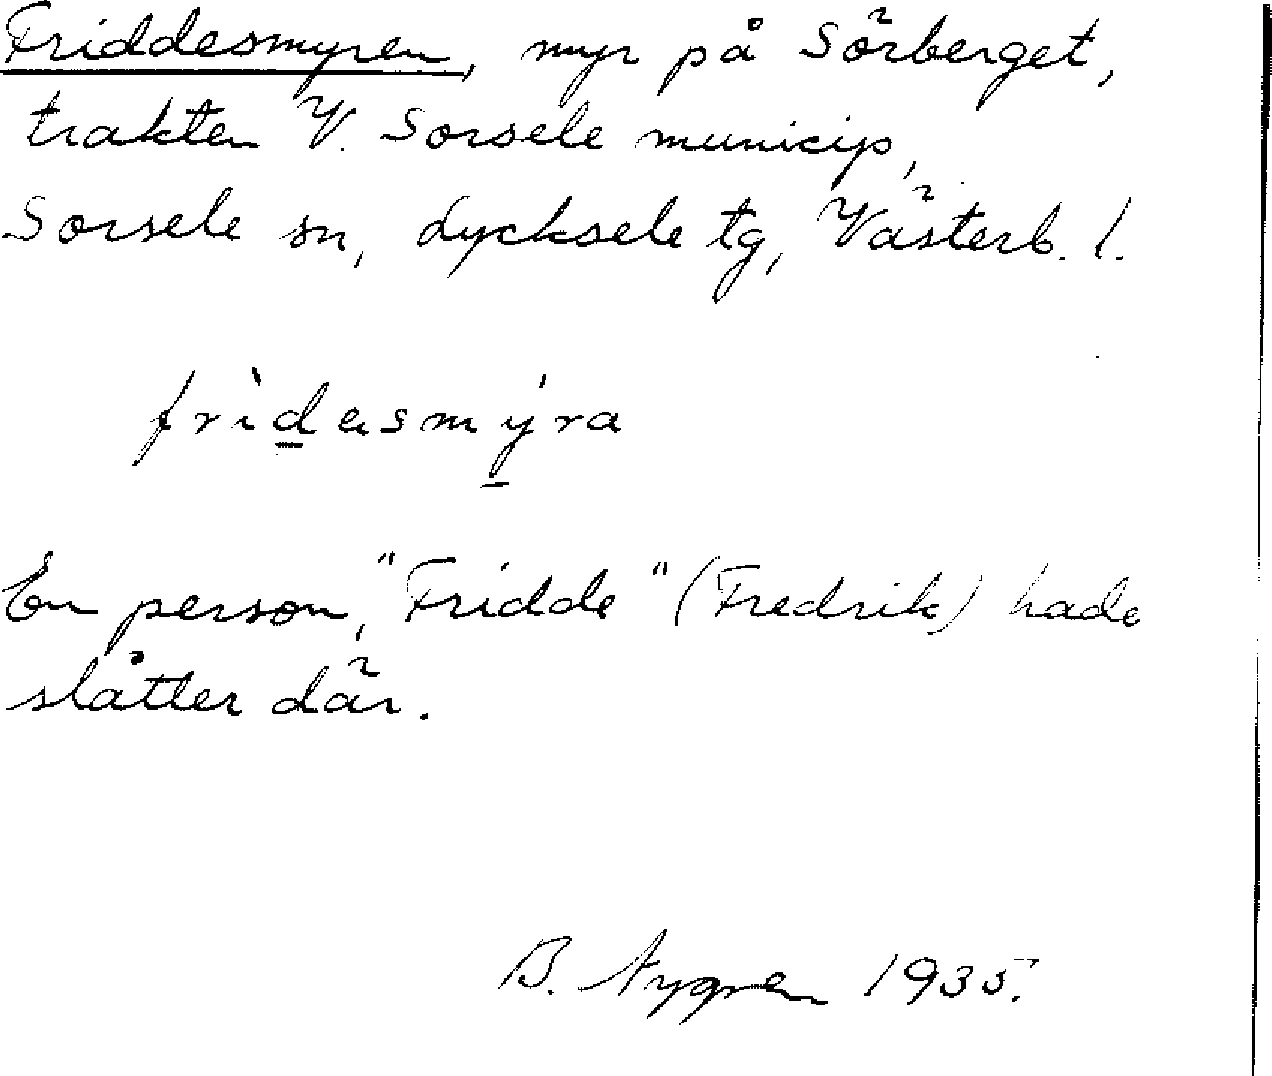 Friddesmyren, myr på Sörberget,
trakten V. Sorsele municip,
Sorsele sn, Lycksele tg, Västerb. l.
frìdasmýra
En person, "Fridde" (Fredrik) hade
slåtter där.
B. Nygren 1935.